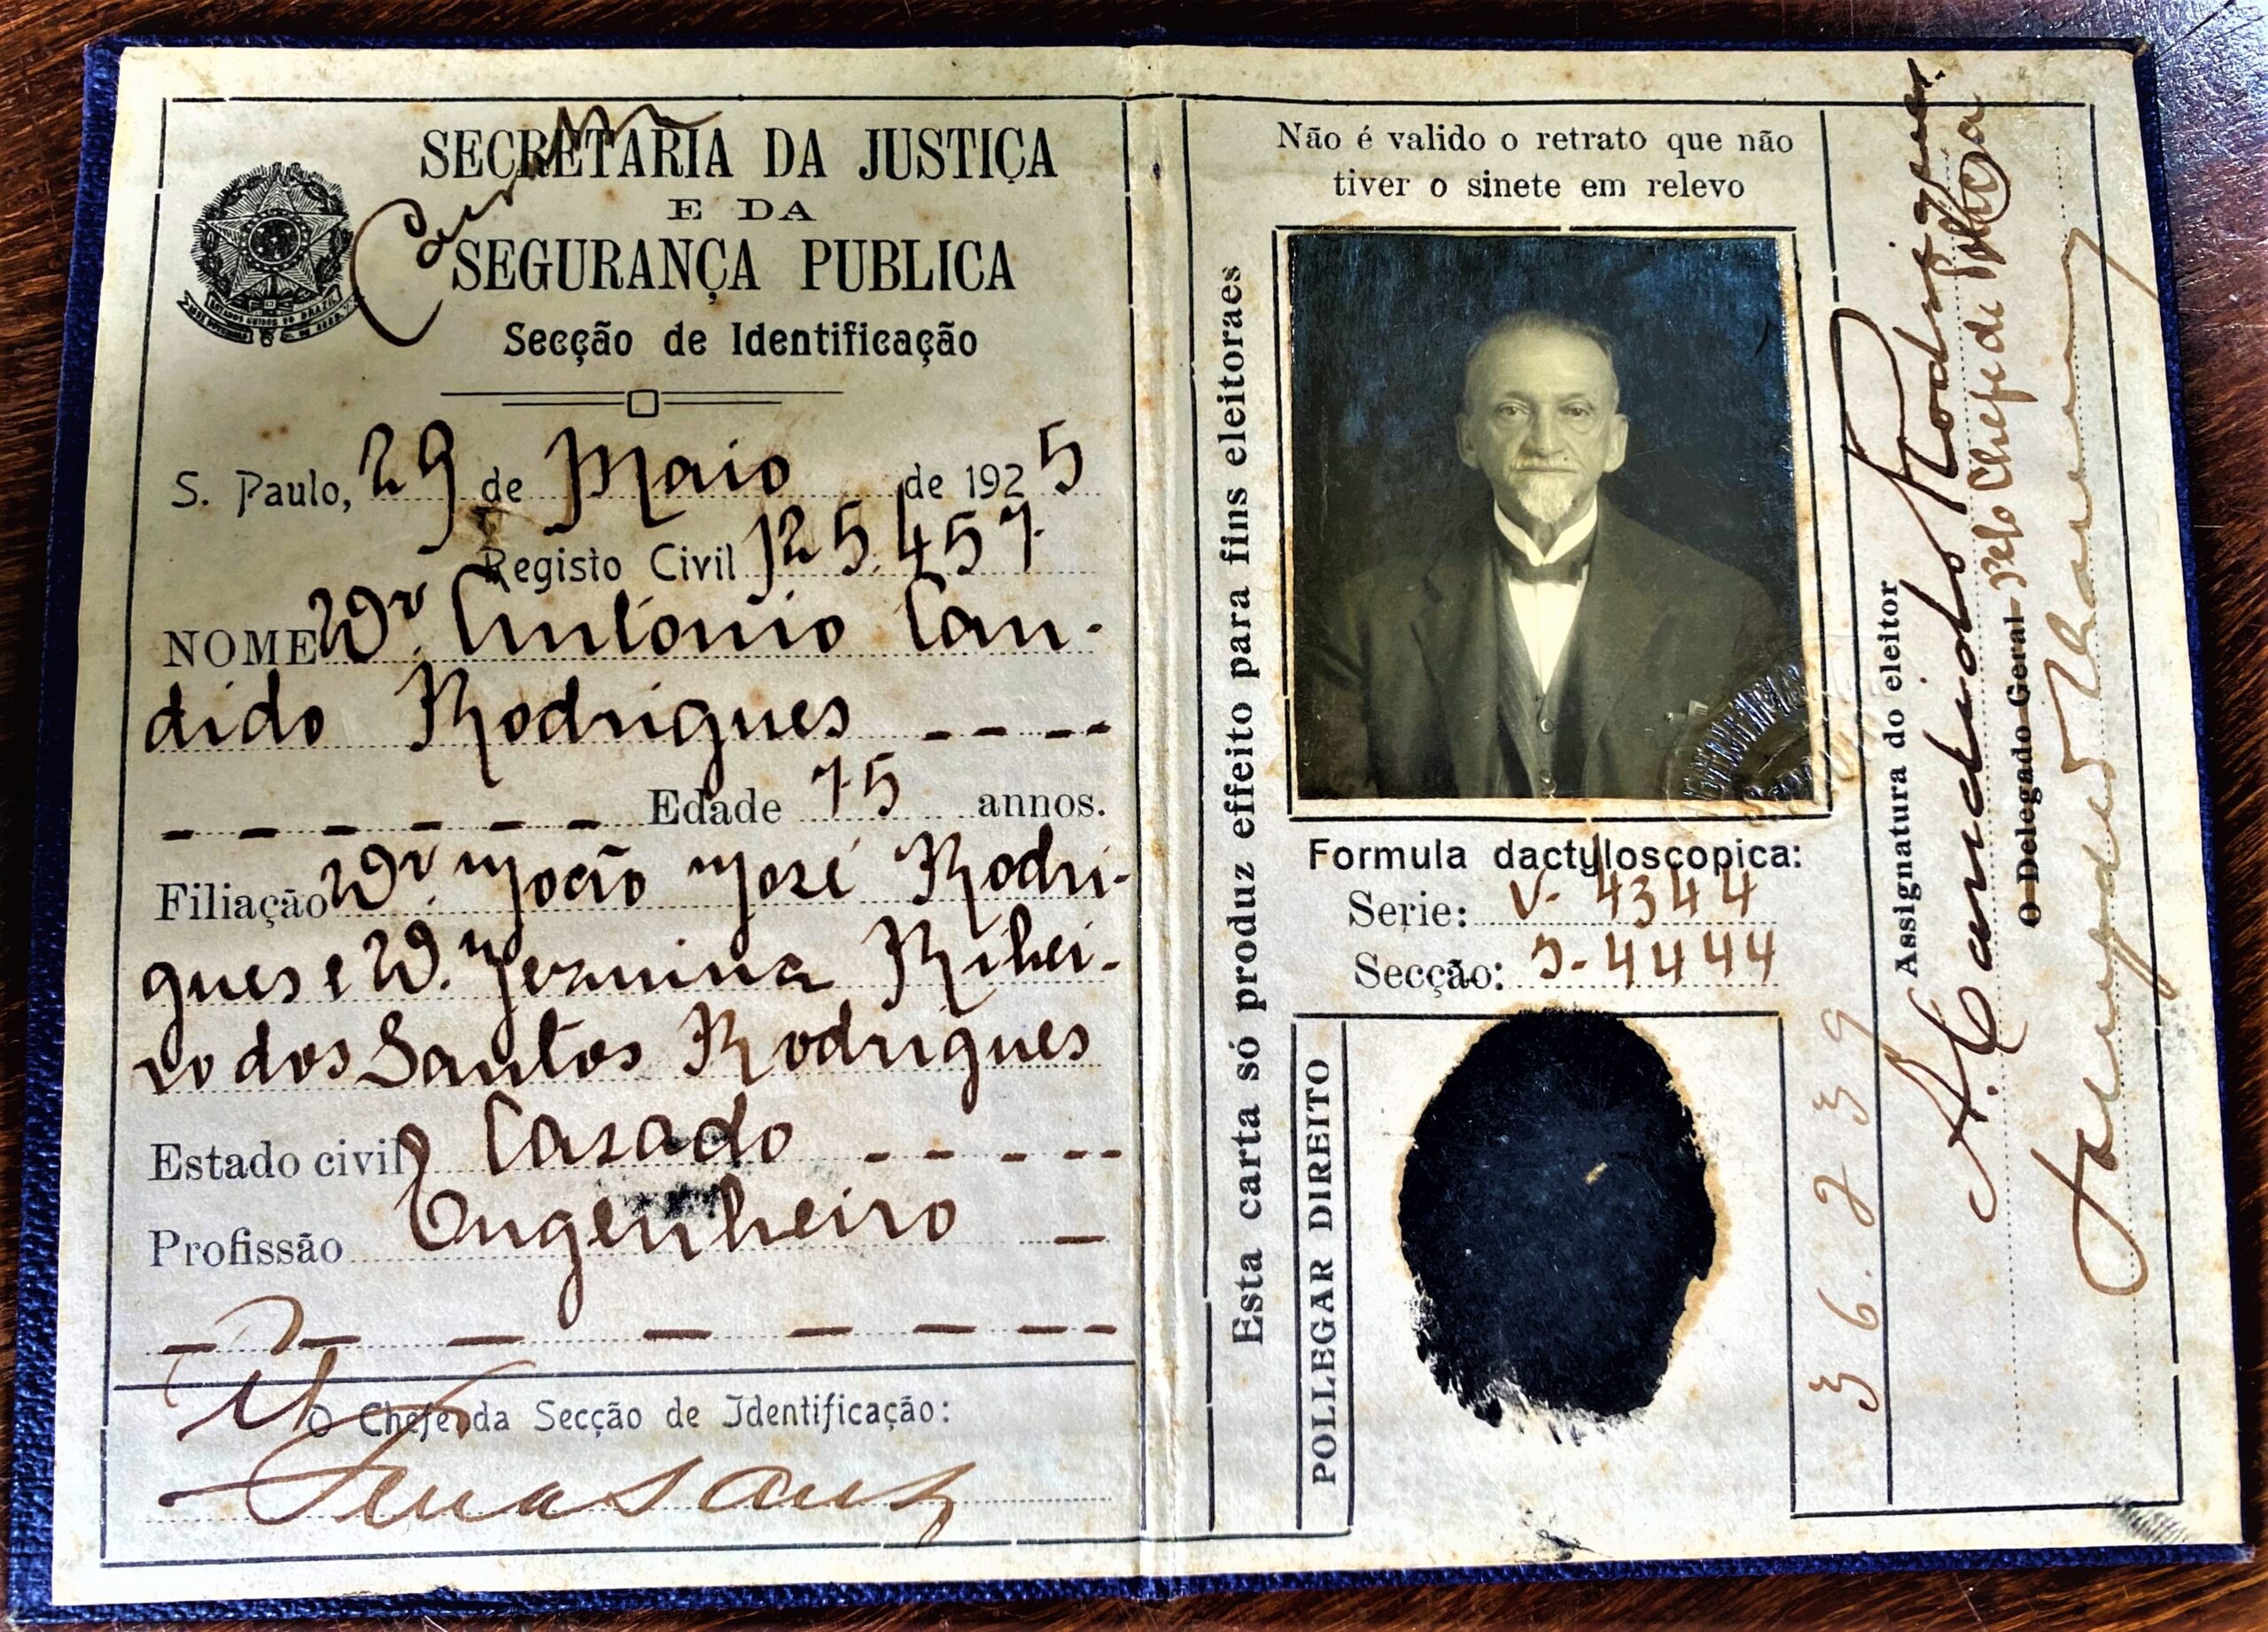 SECRETARIA DA JUSTIÇA
E DA
SEGURANÇA PUBLICA
Secção de Identificação
S. Paulo, 29 de Maio de 1925
Registo Civil 125.457
NOME Dr. Antonio Can-
dido Rodrigues
Edade 75 annos.
Filiação Dr. João José Rodri-
gues e D. Jesuina Ribei-
ro dos Santos Rodrigues
Estado civil Casado
Profissão Engenheiro
O Chefe da Secção de Identificação:
Esta carta só produz effeito para fins eleitoraes
Não é valido o retrato que não
tiver o sinete em relevo
Formula dactyloscopica:
Serie: V- 4344
Secção: I- 4444
POLLEGAR DIREITO
36.239
Assignatura do eleitor
A. Candido Rodrigues.
O Delegado Geral Pelo Chefe de Policia